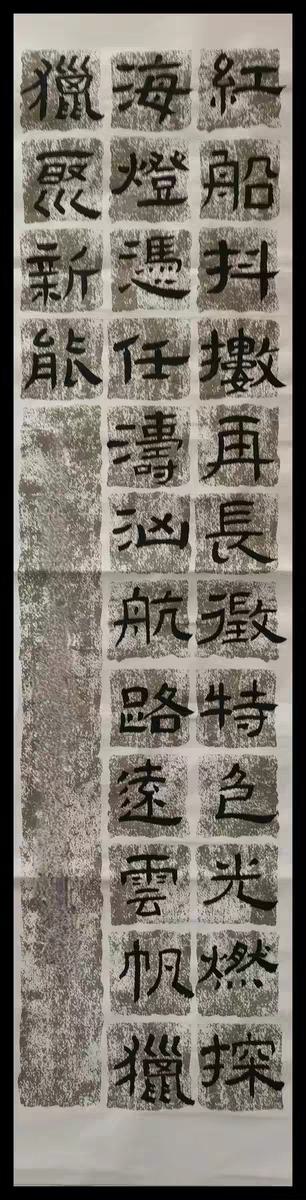 紅船抖擻再長徵特色光燃探
海燈憑任濤汹航路遠雲帆獵
獵聚新能